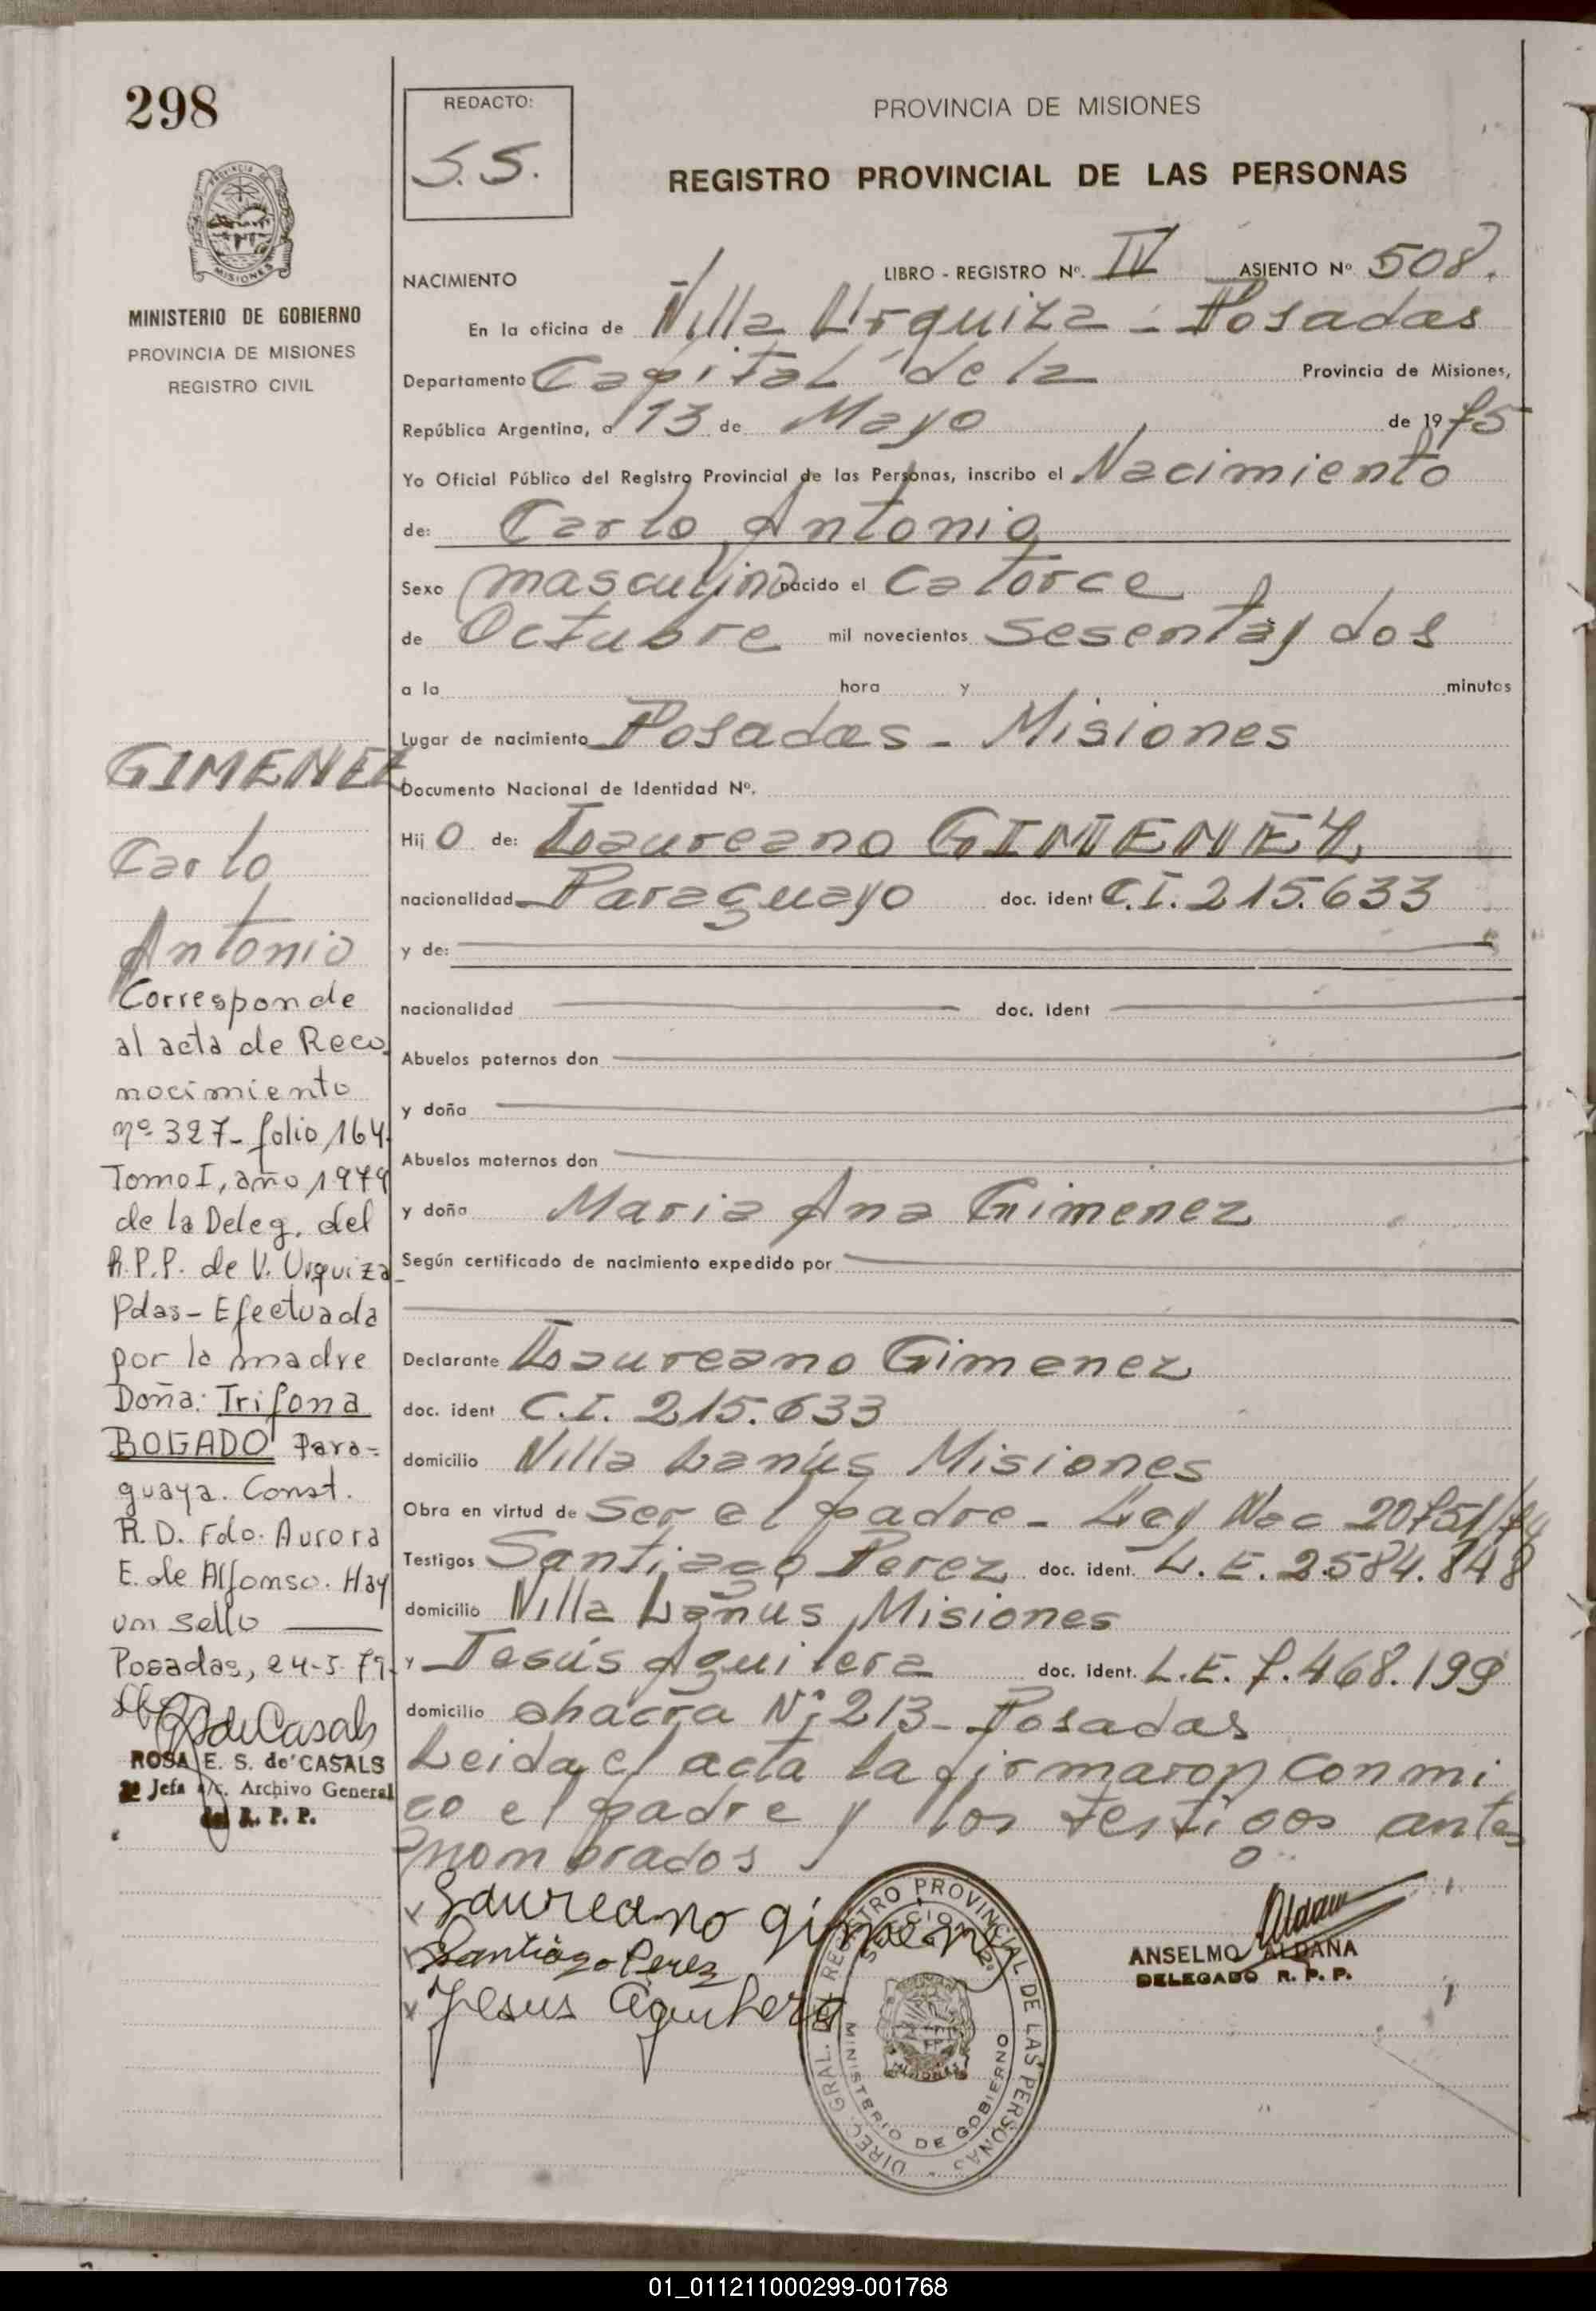 298
MINISTERIO DE GOBIERNO
PROVINCIA DE MISIONES
REGISTRO CIVIL
REDACTO:
S.S.
PROVINCIA DE MISIONES
REGISTRO PROVINCIAL DE LAS PERSONAS
NACIMIENTO LIBRO - REGISTRO Nº. IV ASIENTO Nº 508.
En la oficina de Villa Urquiza - Posadas
Departamento Capital de la Provincia de Misiones,
República Argentina, a 13 de Mayo de 1975
Yo Oficial Público del Registro Provincial de las Personas, inscribo el Nacimiento
de: Carlo Antonio
Sexo masculino nacido el Catorce
de Octubre mil novecientos sesenta y dos
a la hora y minutos
Lugar de nacimiento Posadas - Misiones
Documento Nacional de Identidad Nº.
Hij o de: Laureano GIMENEZ
nacionalidad Paraguayo doc. ident C.I. 215.633
y de:
nacionalidad doc. ident
Abuelos paternos don
y doña
Abuelos maternos don
y doña Maria Ana Gimenez
Según certificado de nacimiento expedido por
Declarante Laureano Gimenez
doc. ident C.I. 215.633
domicilio Villa Lanús Misiones
Obra en virtud de ser el padre - Ley Nac 20751/74
Testigos Santiago Perez doc. ident. L.E. 2.584.848
domicilio Villa Lanus Misiones
y Jesús Aguilera doc. ident. L.E. 7.468.199
domicilio chacra Nº 213 - Posadas
Leida el acta la firmaron conmi
go el padre y los testigos antes
nombrados
Laureano gimenez
Santiago Perez
Jesus Aguilera
DIREC. GRAL. DEL REGISTRO PROVINCIAL DE LAS PERSONAS
MINISTERIO DE GOBIERNO
MISIONES
Aldana
ANSELMO ALDANA
DELEGADO R. P. P.
GIMENEZ
Carlo
Antonio
Corresponde
al acta de Reco
nocimiento
nº 327 - folio 164.
Tomo I, año 1979
de la Deleg. del
R.P.P. de V. Urquiza
Pdas - Efectuada
por la madre
Doña: Trifona
BOGADO Para=
guaya. Const.
R.D. Fdo. Aurora
E. de Alfonso. Hay
un sello
Posadas, 24-5-79.
de Casals
ROSA E. S. de CASALS
2º Jefa a/c. Archivo General
del R. P. P.
01_011211000299-001768